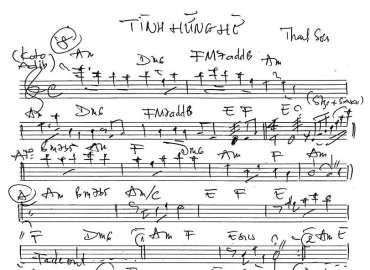 TÌNH HỪNG HỜ
Thanh Sơn
(Koto
Adlib) Am Dm6 FM7addB Am
Am Dm6 FM7addB E F E
A7 Bm7b5 Am F Dm6 Am F Am
A Am Bm7b5 Am/C E F E
F Dm6 Am F Esus 2 Am E
Fade out